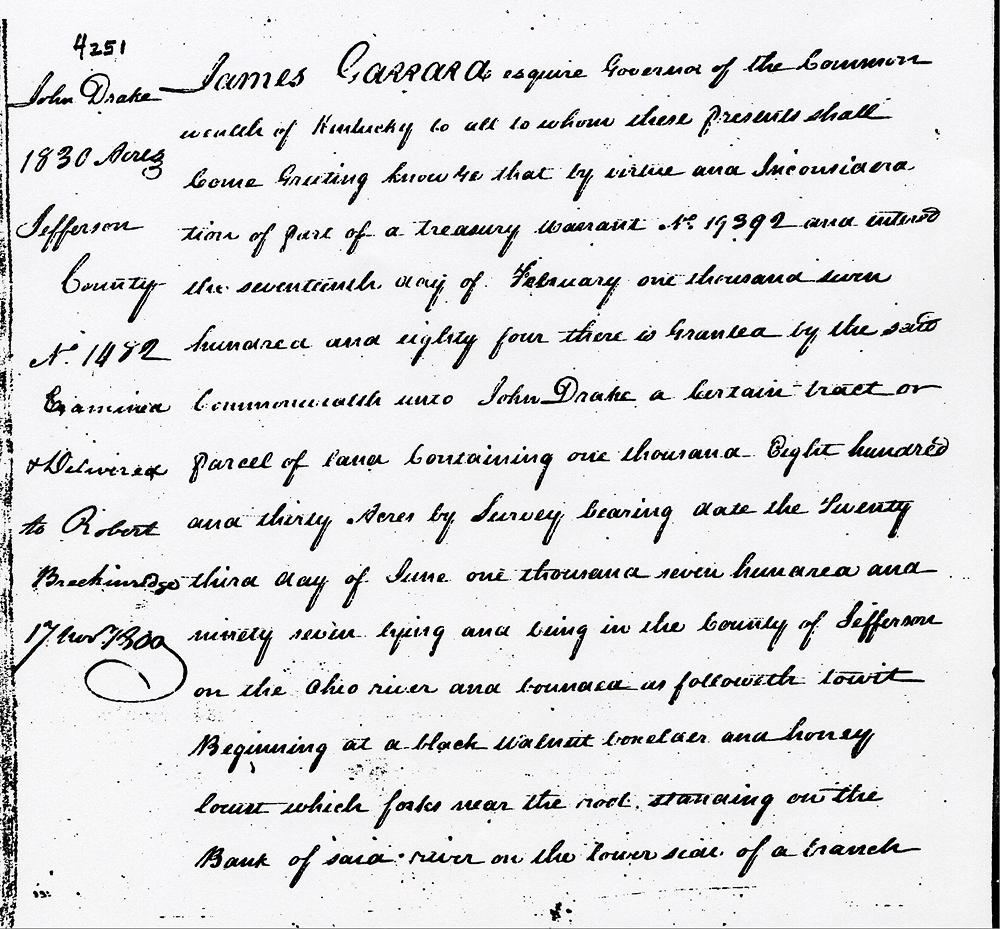 4251
John Drake
1830 Acres
Jefferson
County
No. 1482
Examined
& Delivered
to Robert
Breckinredge
17 Novr. 1800
James Garrard esquire Governor of the Common
wealth of Kentucky to all to whom these presents shall
Come Greeting know Ye that by virtue and Inconsidera
tion of part of a treasury warrant No. 19392 and entered
the seventeenth day of February one thousand seven
hundred and eighty four there is Granted by the said
Commonwealth unto John Drake a Certain tract or
parcel of land Containing one thousand Eight hundred
and thirty Acres by Survey bearing date the Twenty
third day of June one thousand seven hundred and
ninety seven lying and being in the County of Jefferson
on the Ohio river and bounded as followeth towit
Beginning at a black walnut boxelder and honey
locust which forks near the root standing on the
Bank of said river on the lower side of a branch